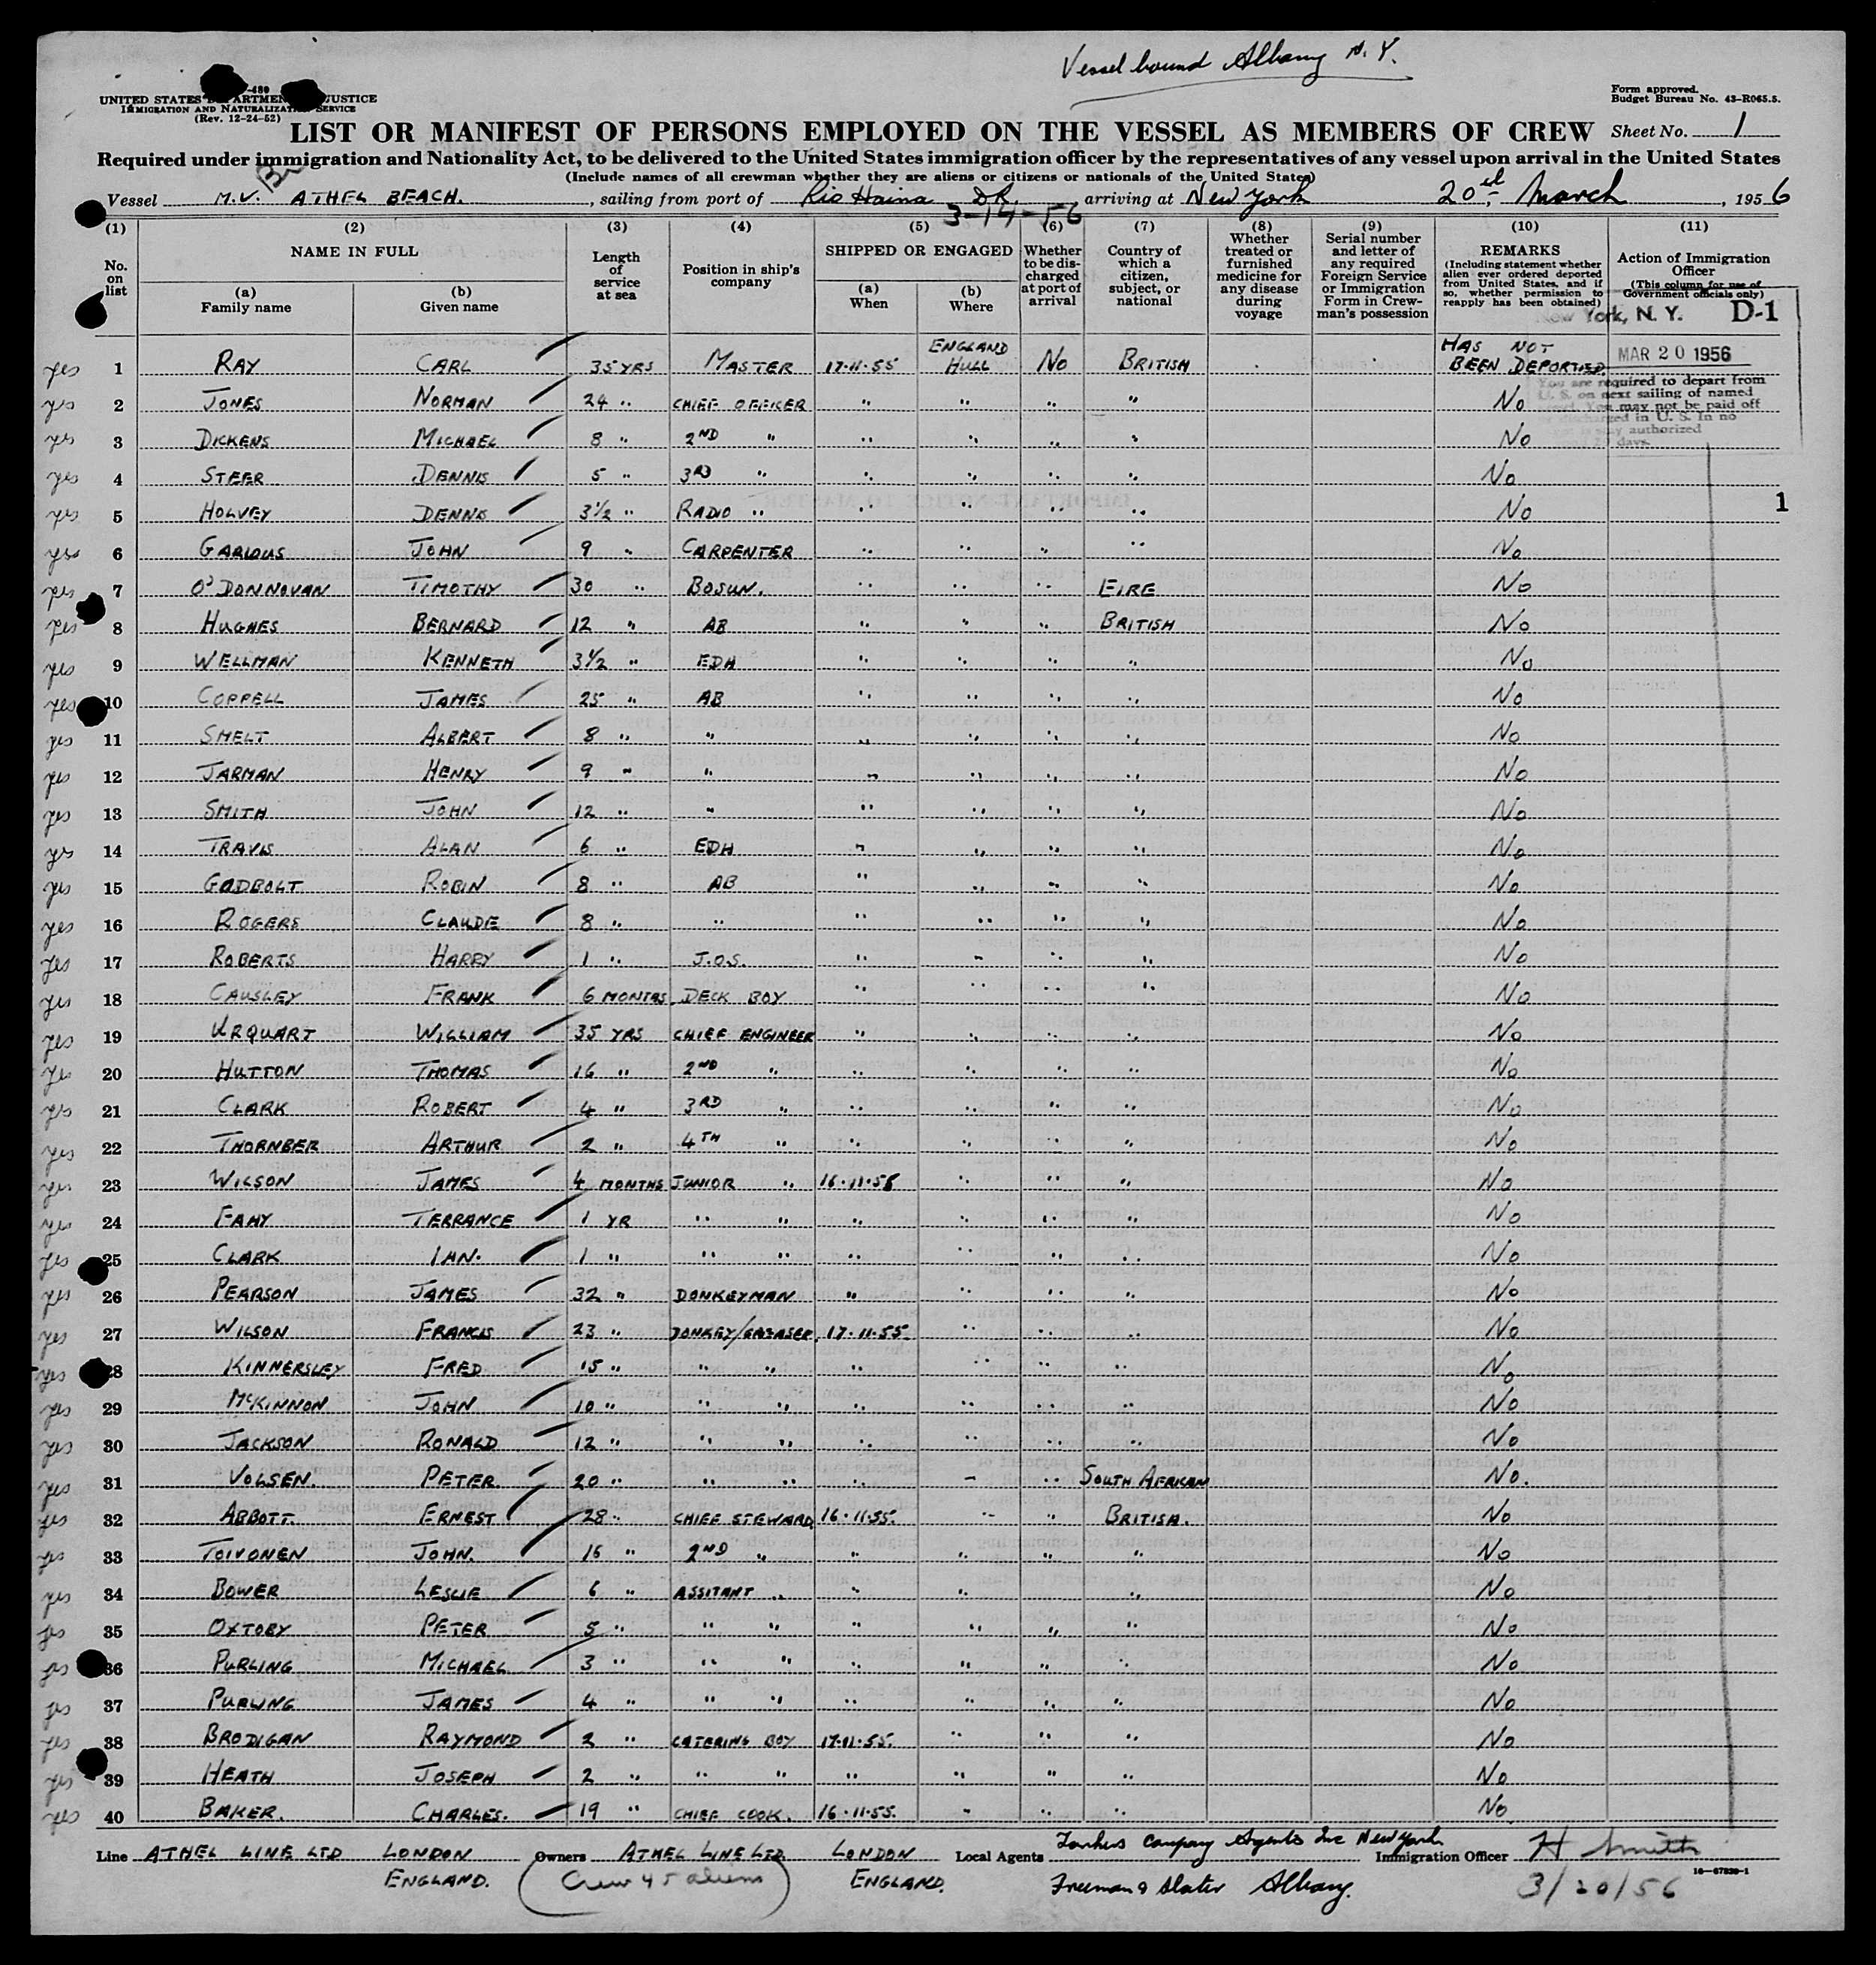 Vessel bound Albany N.Y.
UNITED STATES DEPARTMENT JUSTICE
IMMIGRATION AND NATURALIZATION SERVICE
(Rev. 12-24-52)
Form approved.
Budget Bureau No. 43-R065.5.
LIST OR MANIFEST OF PERSONS EMPLOYED ON THE VESSEL AS MEMBERS OF CREW Sheet No. 1
Required under immigration and Nationality Act, to be delivered to the United States immigration officer by the representatives of any vessel upon arrival in the United States
(Include names of all crewman whether they are aliens or citizens or nationals of the United States)
Br
Vessel M.V. ATHEL BEACH., sailing from port of Rio Haina D.R., arriving at New York 20th March, 1956
3-14-56
(1) No. on list
(2) NAME IN FULL (a) Family name (b) Given name
(3) Length of service at sea
(4) Position in ship's company
(5) SHIPPED OR ENGAGED (a) When (b) Where
(6) Whether to be discharged at port of arrival
(7) Country of which a citizen, subject, or national
(8) Whether treated or furnished medicine for any disease during voyage
(9) Serial number and letter of any required Foreign Service or Immigration Form in Crewman's possession
(10) REMARKS (Including statement whether alien ever ordered deported from United States, and if so, whether permission to reapply has been obtained)
(11) Action of Immigration Officer (This column for use of Government officials only)
New York, N. Y. D-1
MAR 20 1956
You are required to depart from
U. S. on next sailing of named
vessel. You may not be paid off
or discharged in U. S. In no
authorized
days.
1
yes 1 RAY CARL 35 YRS MASTER 17-11-55 ENGLAND HULL No BRITISH HAS NOT BEEN DEPORTED
yes 2 JONES NORMAN 24 " CHIEF OFFICER " " " " No
yes 3 DICKENS MICHAEL 8 " 2ND " " " " " No
yes 4 STEER DENNIS 5 " 3RD " " " " " No
yes 5 HOLVEY DENNIS 3½ " RADIO " " " " " No
yes 6 GARLOUS JOHN 9 " CARPENTER " " " " No
yes 7 O'DONNOVAN TIMOTHY 30 " BOSUN. " " " EIRE No
yes 8 HUGHES BERNARD 12 " AB " " " BRITISH No
yes 9 WELLMAN KENNETH 3½ " EDH " " " " No
yes 10 COPPELL JAMES 25 " AB " " " " No
yes 11 SMELT ALBERT 8 " " " " " " No
yes 12 JARMAN HENRY 9 " " " " " " No
yes 13 SMITH JOHN 12 " " " " " " No
yes 14 TRAVIS ALAN 6 " EDH " " " " No
yes 15 GODBOLT ROBIN 8 " AB " " " " No
yes 16 ROGERS CLAUDE 8 " " " " " " No
yes 17 ROBERTS HARRY 1 " J.O.S. " " " " No
yes 18 CAUSLEY FRANK 6 MONTHS DECK BOY " " " " No
yes 19 URQUART WILLIAM 35 YRS CHIEF ENGINEER " " " " No
yes 20 HUTTON THOMAS 16 " 2ND " " " " " No
yes 21 CLARK ROBERT 4 " 3RD " " " " " No
yes 22 THORNBER ARTHUR 2 " 4TH " " " " " No
yes 23 WILSON JAMES 4 MONTHS JUNIOR " 16-11-55 " " " No
yes 24 FAHY TERRANCE 1 YR " " " " " " No
yes 25 CLARK IAN. 1 " " " " " " " No
yes 26 PEARSON JAMES 32 " DONKEYMAN " " " " No
yes 27 WILSON FRANCIS 23 " DONKEY/GREASER 17-11-55. " " " No
yes 28 KINNERSLEY FRED 15 " " " " " " " No
yes 29 McKINNON JOHN 10 " " " " " " " No
yes 30 JACKSON RONALD 12 " " " " " " " No
yes 31 VOLSEN. PETER. 20 " " " " " " SOUTH AFRICAN No.
yes 32 ABBOTT. ERNEST 28 " CHIEF STEWARD 16-11-55. " " BRITISH. No
yes 33 TOIVONEN JOHN. 16 " 2ND " " " " " No
yes 34 BOWER LESLIE 6 " ASSITANT " " " " " No
yes 35 OXTOBY PETER 5 " " " " " " " No
yes 36 PURLING MICHAEL 3 " " " " " " " No
yes 37 PURLING JAMES 4 " " " " " " " No
yes 38 BRODIGAN RAYMOND 2 " CATERING BOY 17-11-55. " " " No
yes 39 HEATH JOSEPH 2 " " " " " " " No
yes 40 BAKER. CHARLES. 19 " CHIEF COOK. 16-11-55. " " " No
Line ATHEL LINE LTD LONDON ENGLAND. Owners ATHEL LINE LTD. LONDON ENGLAND. Local Agents Tankers Company Agents Inc New York Immigration Officer H Smith
Crew 45 aliens
Freeman & Slater Albany.
16-67830-1
3/20/56